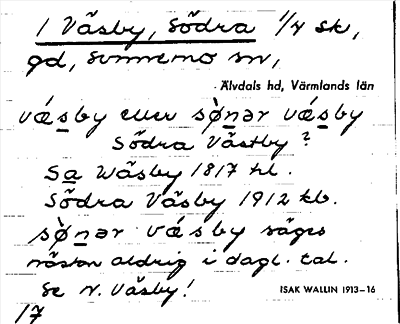 1 Väsby, Södra 1/4 sk,
gd, Sunnemo sn,
Älvdals hd, Värmlands län
vǽsby eller sø̀nər vǽsby
Södra Västby?
Sa Wäsby 1817 hl.
Södra Väsby 1912 kb.
sø̀nər vǽsby säges
nästan aldrig i dagl. tal.
Se N. Väsby!
ISAK WALLIN 1913–16
17